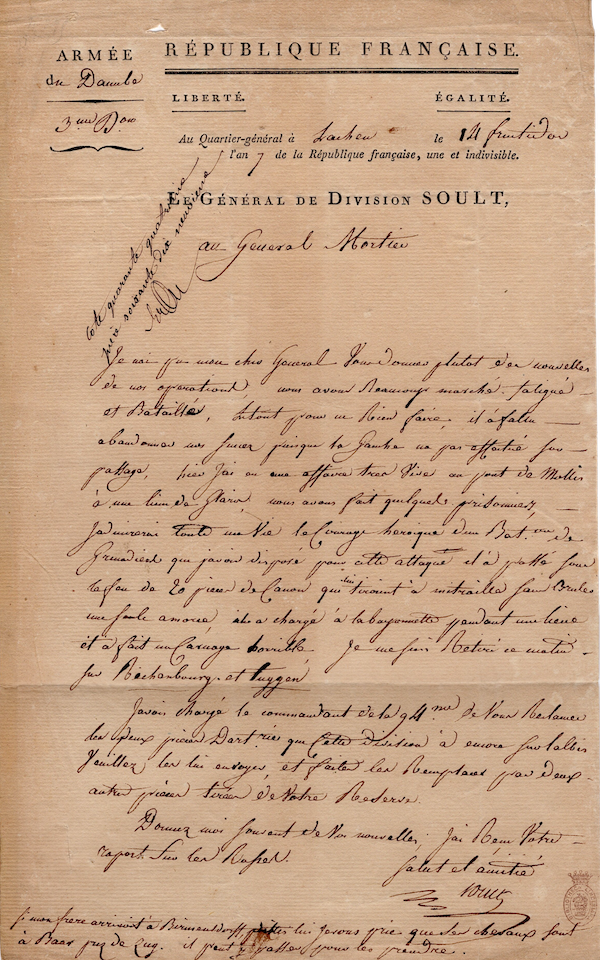 ARMÉE
du Danube
3.me D.on
RÉPUBLIQUE FRANÇAISE.
LIBERTÉ. ÉGALITÉ.
Au Quartier-général à Lachen le 14 fructidor
l'an 7 de la République française, une et indivisible.
LE GÉNÉRAL DE DIVISION SOULT,
au General Mortier
Cote quarante quatrieme
piece soixante dix neuvieme
Je nai pu mon cher General Vous donner plutot des nouvelles
de nos operations, nous avons Beaucoup marché, fatigué
et Bataillé, le tout pour ne Rien faire, il a fallu
abandonner nos succez puisque la Gauche na pas effectué son
passage, hier Jai eu une affaire tres Vive au pont de Mollis
à une lieue de Glaris, nous avons fait quelques prisonniers,
Jadmirerai toute ma Vie le Courage heroique dun Bat.on de
Grenadiers qui javois disposé pour cette attaque il à passé sous
le feu de 20 pieces de Canon qui tiroient à mitraille sans Bruler
une seule amorce, il a chargé à la bayonnette pendant une lieue
et à fait un Carnage horrible. Je me suis Retiré ce matin
sur Richenbourg et
Javois chargé le commandant de la 94.me de Vous Reclamer
les deux pieces Dart.rie que Cette division à encore sur lalbis
Veuillez les lui envoyer, et faites les Remplacer par deux
autres pieces tirées de Votre Reserve.
Donnez moi souvent de Vos nouvelles, Jai Reçu Votre
raport Sur les Russes.
Salut et amitié
Soult
Si mon frere arrivoit à Birmensdorff, lui Je vous prie que Ses chevaux sont
à Baar prez de Zug. il peut y passer pour les prendre.